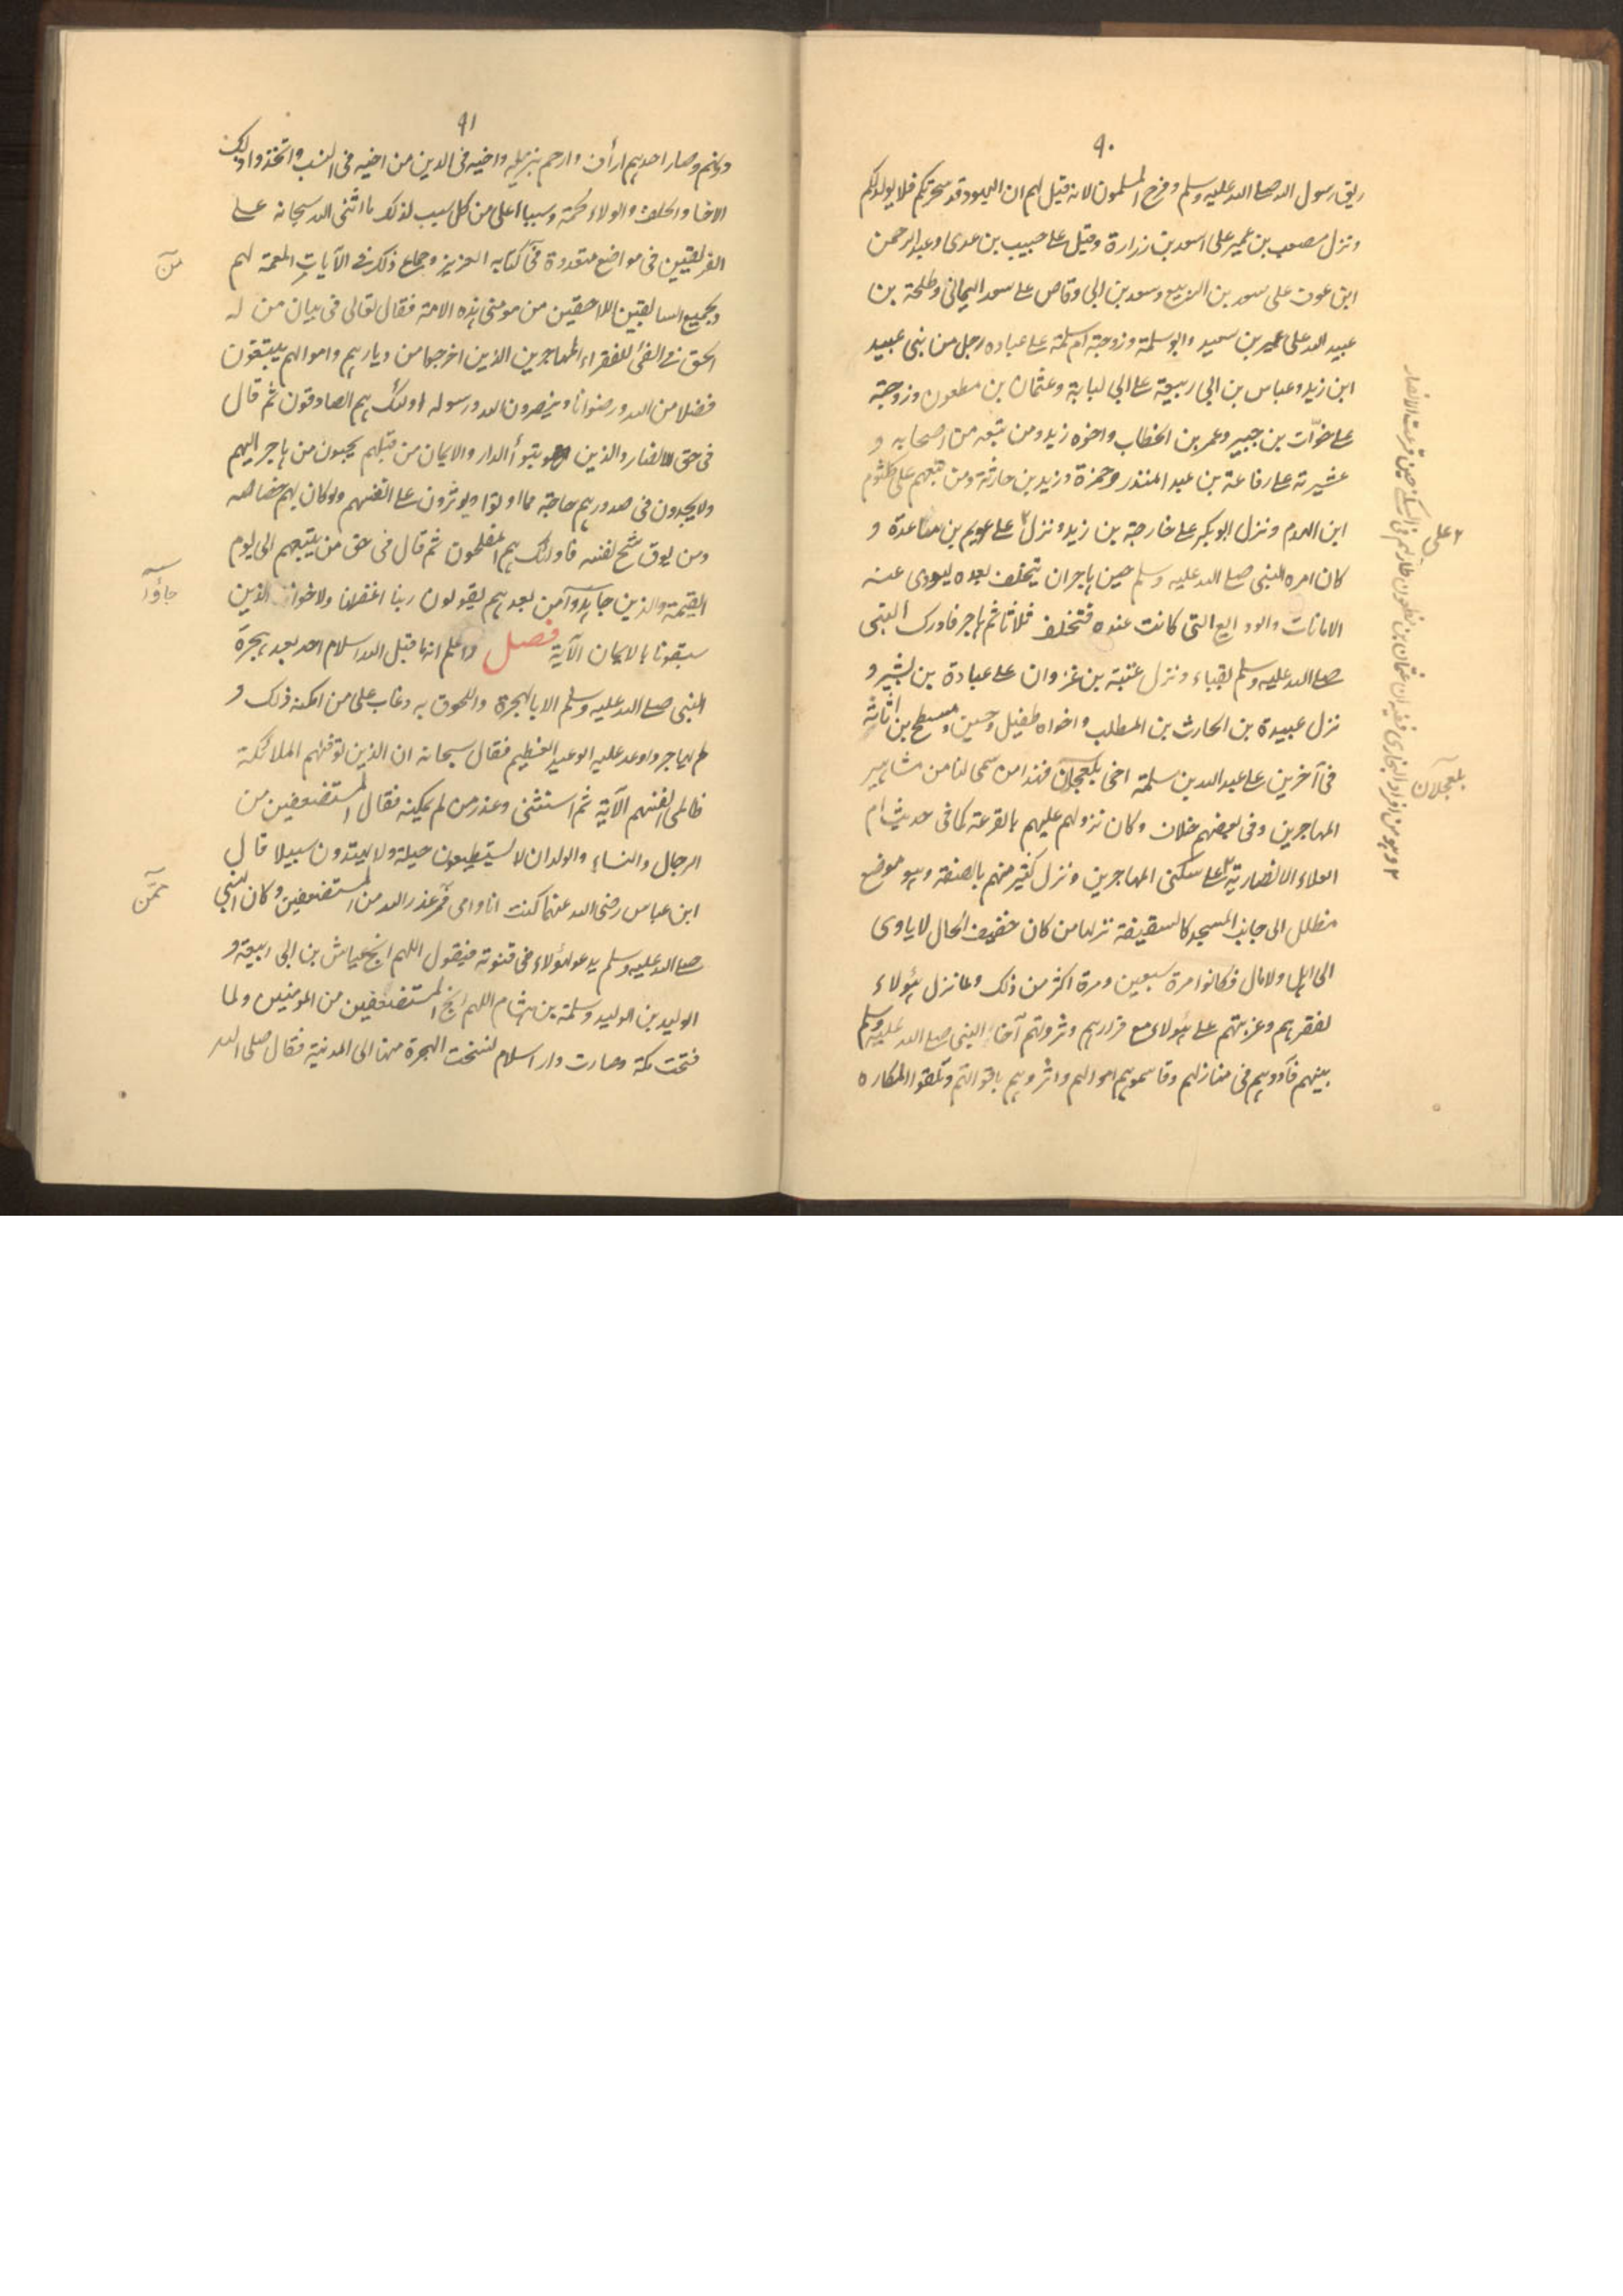 ٩٠
ريق رسول الله صلے الله عليه وسلم وفرح المسلمون لانه قيل لهم ان اليهود قد سحرتكم فلا يولد لكم
ونزل مصعب بن عمير على اسعد بن زرارة وقيل علے حبيب بن عدى وعبد الرحمن
ابن عوف على سعد بن الربيع وسعد بن ابى وقاص علے سعد اليمانى وطلحة بن
عبيد الله على عمير بن سعيد وابو سلمة وزوجته ام سلمة علے عباده رجل من بنى عبيد
ابن زيد وعباس بن ابى ربيعة علے ابى لبابة وعثمان بن مطعون وزوجته
علے خوّات بن جبير وعمر بن الخطاب واخوه زيد ومن تبعه من اصحابه و
عشيرته علے رفاعة بن عبد المنذر وحمزة وزيد بن حارثة ومن تبعهم على كلثوم
ابن الهدم ونزل ابو بكر علے خارجة بن زيد ونزل ٢ علے عويم بن ساعدة و
كان امره النبى صلے الله عليه وسلم حين هاجر ان يتخلف بعده ليودى عنه
الامانات والودايع التى كانت عنده فتخلف ثلاثا ثم هاجر فادرك النبى
صلے الله عليه وسلم بقباء ونزل عتبة بن غزوان علے عبادة بن بشير و
نزل عبيدة بن الحارث بن المطلب واخواه طفيل وحسين ومسطح بن اثاثة
فى آخرين علے عبد الله بن سلمة اخى بلعجلان فهذا من سمى لنا من مشاهير
المهاجرين وفى بعضهم خلاف وكان نزولهم عليهم بالقرعة كما فى حديث ام
العلاء الانصارية ٢ علے سكنى المهاجرين ونزل كثير منهم بالصفة وهو موضع
مظلل الى جانب المسجد كالسقيفة نزلها من كان خفيف الحال لا ياوى
الى اهل ولا مال فكانوا مرة سبعين ومرة اكثر من ذلك ولما نزل هؤلاء
لفقرهم وعزبتهم علے هؤلاء مع قرارهم وثروتهم آخا النبى صلے الله عليه وسلم
بينهم فآدوهم فى منازلهم وقاسموهم اموالهم واثروهم باقواتهم وتلقوا المكاره
٢ على
بلعجلان
٩١
دونهم وصار احدهم ارأف وارحم بنزيله واخيه فى الدين من اخيه فى النسب واتخذوا ذلك
الاخا والحلف والولاء لحمة وسببا اعلى من كل سبب لذلك ما اثنى الله سبحانه علے
الفريقين فى مواضع متعددة فى كتابه العزيز وجماع ذلك فى الآيات المعمة لهم
وبجميع السابقين اللاحقين من مومنى هذه الامة فقال تعالى فى بيان من له
الحق فى الفئ للفقراء المهاجرين الذين اخرجوا من ديارهم واموالهم يبتغون
فضلا من الله ورضوانا وينصرون الله ورسوله اولئك هم الصادقون ثم قال
فى حق الانصار والذين تبوأ الدار والايمان من قبلهم يحبون من هاجر اليهم
ولا يجدون فى صدورهم حاجة مما اوتوا ويوثرون علے انفسهم ولو كان بهم خصاصه
ومن يوق شح نفسه فاولئك هم المفلحون ثم قال فى حق من يتبعهم الى يوم
القيمة والذين جاهدوا من بعدهم يقولون ربنا اغفرلنا ولاخواننا الذين
سبقونا بالايمان الآية فصل واعلم انه ما قبل الله اسلام احد بعد هجرة
النبى صلے الله عليه وسلم الا بالهجرة واللحوق به وعاب على من امكنه ذلك و
لم يهاجر واوعد عليه الوعيد العظيم فقال سبحانه ان الذين توفهم الملائكة
ظالمى انفسهم الآية ثم استثنى وعذر من لم يمكنه فقال المستضعفين من
الرجال والنساء والولدان لا يستطيعون حيلة ولا يهتدون سبيلا قال
ابن عباس رضى الله عنهما كنت انا وامى ممن عذر الله من المستضعفين وكان النبى
صلے الله عليه وسلم يدعو لهؤلاء فى قنوته فيقول اللهم انج عياش بن ابى ربيعة و
الوليد بن الوليد وسلمة بن هشام اللهم انج المستضعفين من المومنين ولما
فتحت مكة وصارت دار اسلام نسخت الهجرة منها الى المدينة فقال صلى الله
من
جاؤا
ممن